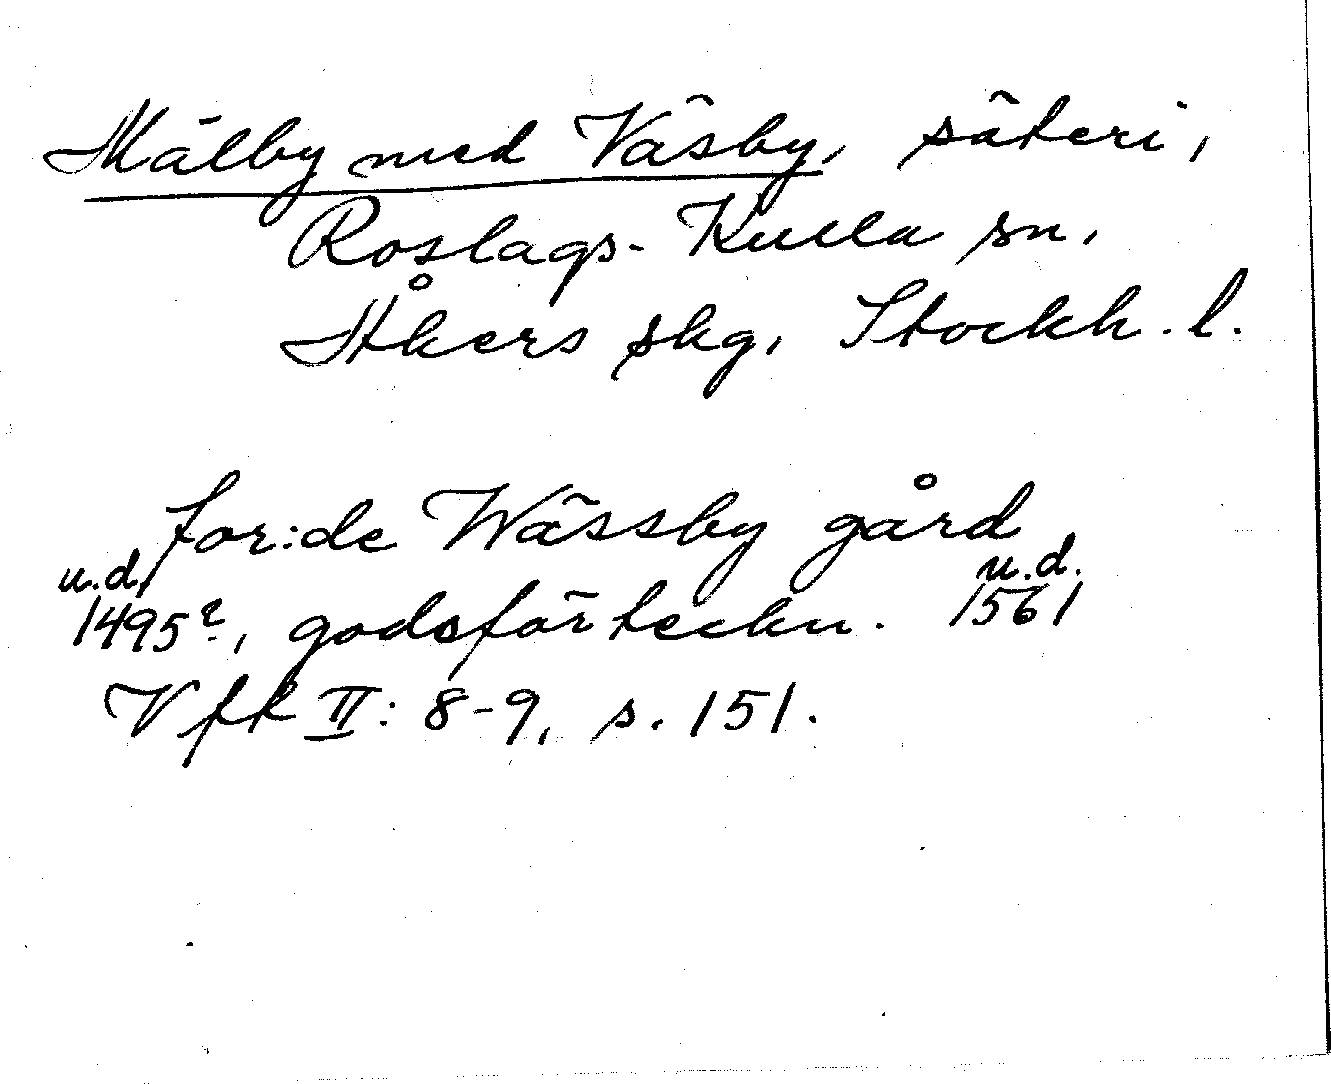 Mälby med Väsby, säteri,
Roslags-Kulla sn,
Åkers skg, Stockh. l.
for:de Wässby gård
u.d. u.d.
1495?, godsförteckn. 1561
Vfk II: 8-9, s. 151.